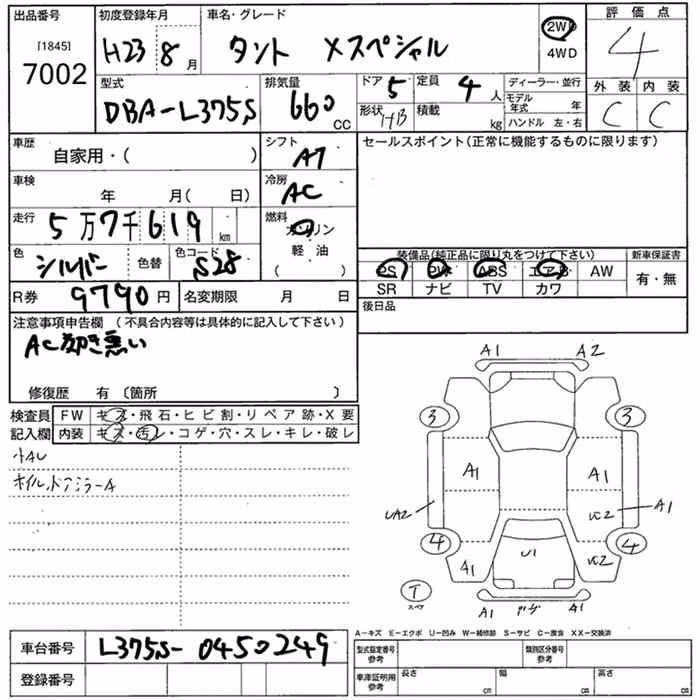 出品番号 初度登録年月 車名・グレード 評価点
[1845] 7002 H23 8月 タント Xスペシャル 2WD 4WD 4
型式 排気量 ドア 5 定員 4人 ディーラー・並行 外装 内装
DBA-L375S 660CC 形状 H/B 積載 kg モデル年式 年 ハンドル 左・右 C C
車歴 自家用・( ) シフト AT セールスポイント(正常に機能するものに限ります)
車検 年 月( 日) 冷房 AC
走行 5万7千619km 燃料 ガソリン
軽油
( )
色 シルバー 色替 色コード S28 装備品(純正品に限り丸をつけて下さい) 新車保証書
PS PW ABS エアB AW 有・無
R券 9790円 名変期限 月 日 SR ナビ TV カワ
注意事項申告欄 (不具合内容等は具体的に記入して下さい) 後日品
AC 効き悪い
修復歴 有 〔箇所 〕
検査員 FW キズ・飛石・ヒビ割・リペア跡・X要
記入欄 内装 キズ・汚レ・コゲ・穴・スレ・キレ・破レ
小AU
ホイル、ドアミラーA
A1 A2
3 3
A1 A1
UA2 UC2 A1
4 U1 4
A1 UC2
T スペア
A1 A1
A-キズ E-エクボ U-凹み W-補修跡 S-サビ C-腐食 XX-交換済
車台番号 L375S-0450249 型式指定番号 参考 類別区分番号 参考
登録番号 車庫証明用 参考 長さ cm 幅 cm 高さ cm